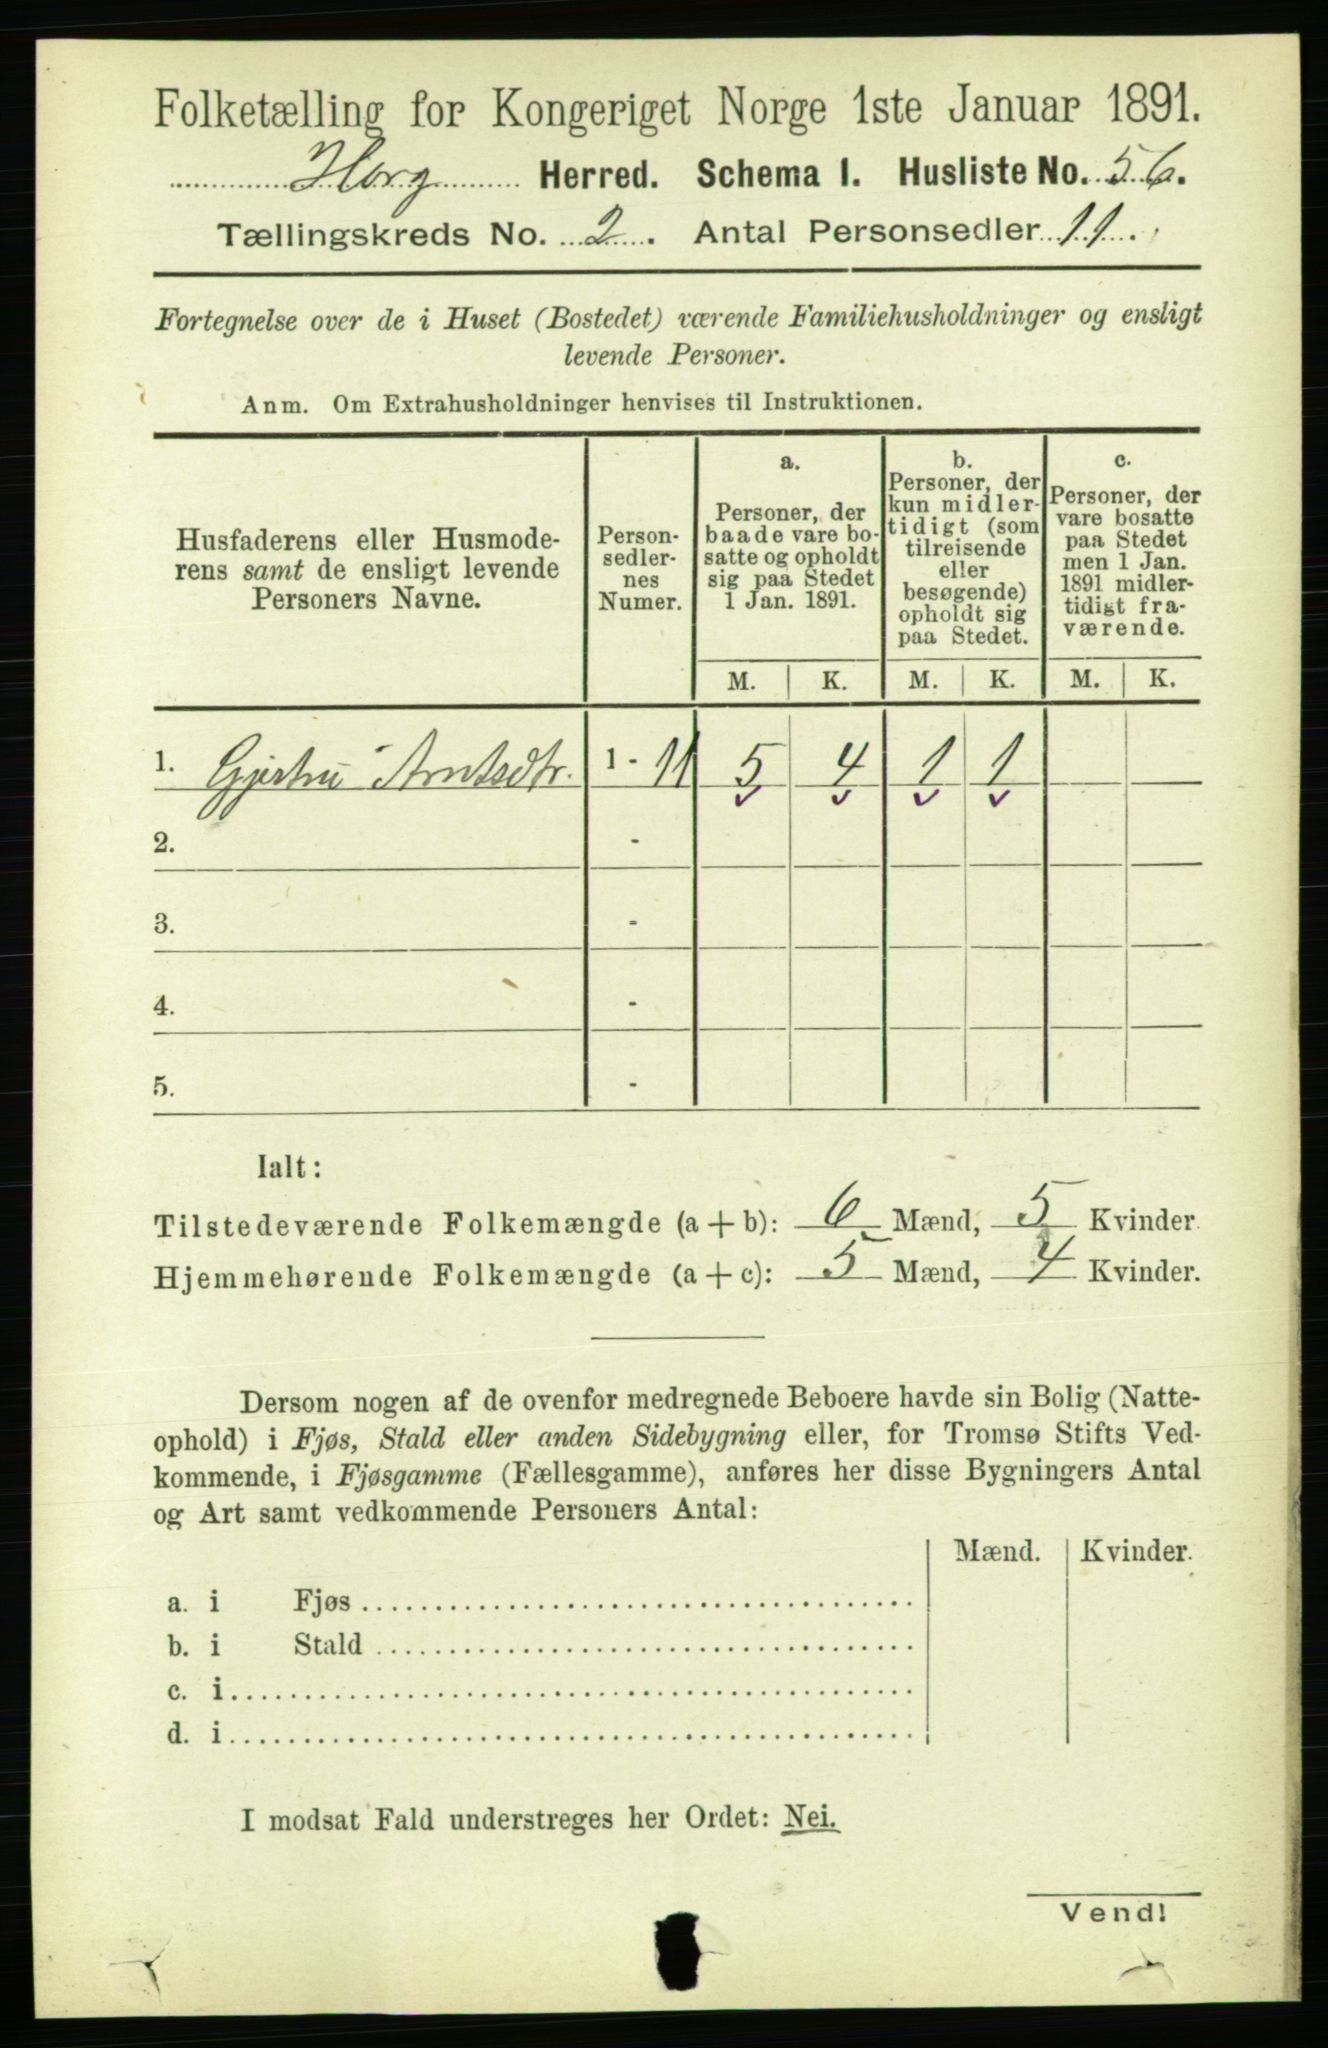 Folketælling for Kongeriget Norge 1ste Januar 1891.
Horg Herred. Schema I. Husliste No. 56.
Tællingskreds No. 2. Antal Personsedler 11.
Fortegnelse over de i Huset (Bostedet) værende Familiehusholdninger og ensligt
levende Personer.
Anm. Om Extrahusholdninger henvises til Instruktionen.
Husfaderens eller Husmode-
rens samt de ensligt levende
Personers Navne.
Person-
sedler-
nes
Numer.
a.
Personer, der
baade vare bo-
satte og opholdt
sig paa Stedet
1 Jan. 1891.
b.
Personer, der
kun midler-
tidigt (som
tilreisende
eller
besøgende)
opholdt sig
paa Stedet.
c.
Personer, der
vare bosatte
paa Stedet
men 1 Jan.
1891 midler-
tidigt fra-
værende.
M. K. M. K. M. K.
1. Gjertru Arntsdtr. 1 - 11 5 4 1 1
2. -
3. -
4. -
5. -
Ialt:
Tilstedeværende Folkemængde (a + b): 6 Mænd, 5 Kvinder.
Hjemmehørende Folkemængde (a + c): 5 Mænd, 4 Kvinder.
Dersom nogen af de ovenfor medregnede Beboere havde sin Bolig (Natte-
ophold) i Fjøs, Stald eller anden Sidebygning eller, for Tromsø Stifts Ved-
kommende, i Fjøsgamme (Fællesgamme), anføres her disse Bygningers Antal
og Art samt vedkommende Personers Antal:
Mænd. Kvinder.
a. i Fjøs
b. i Stald
c. i
d. i
I modsat Fald understreges her Ordet: Nei.
Vend!